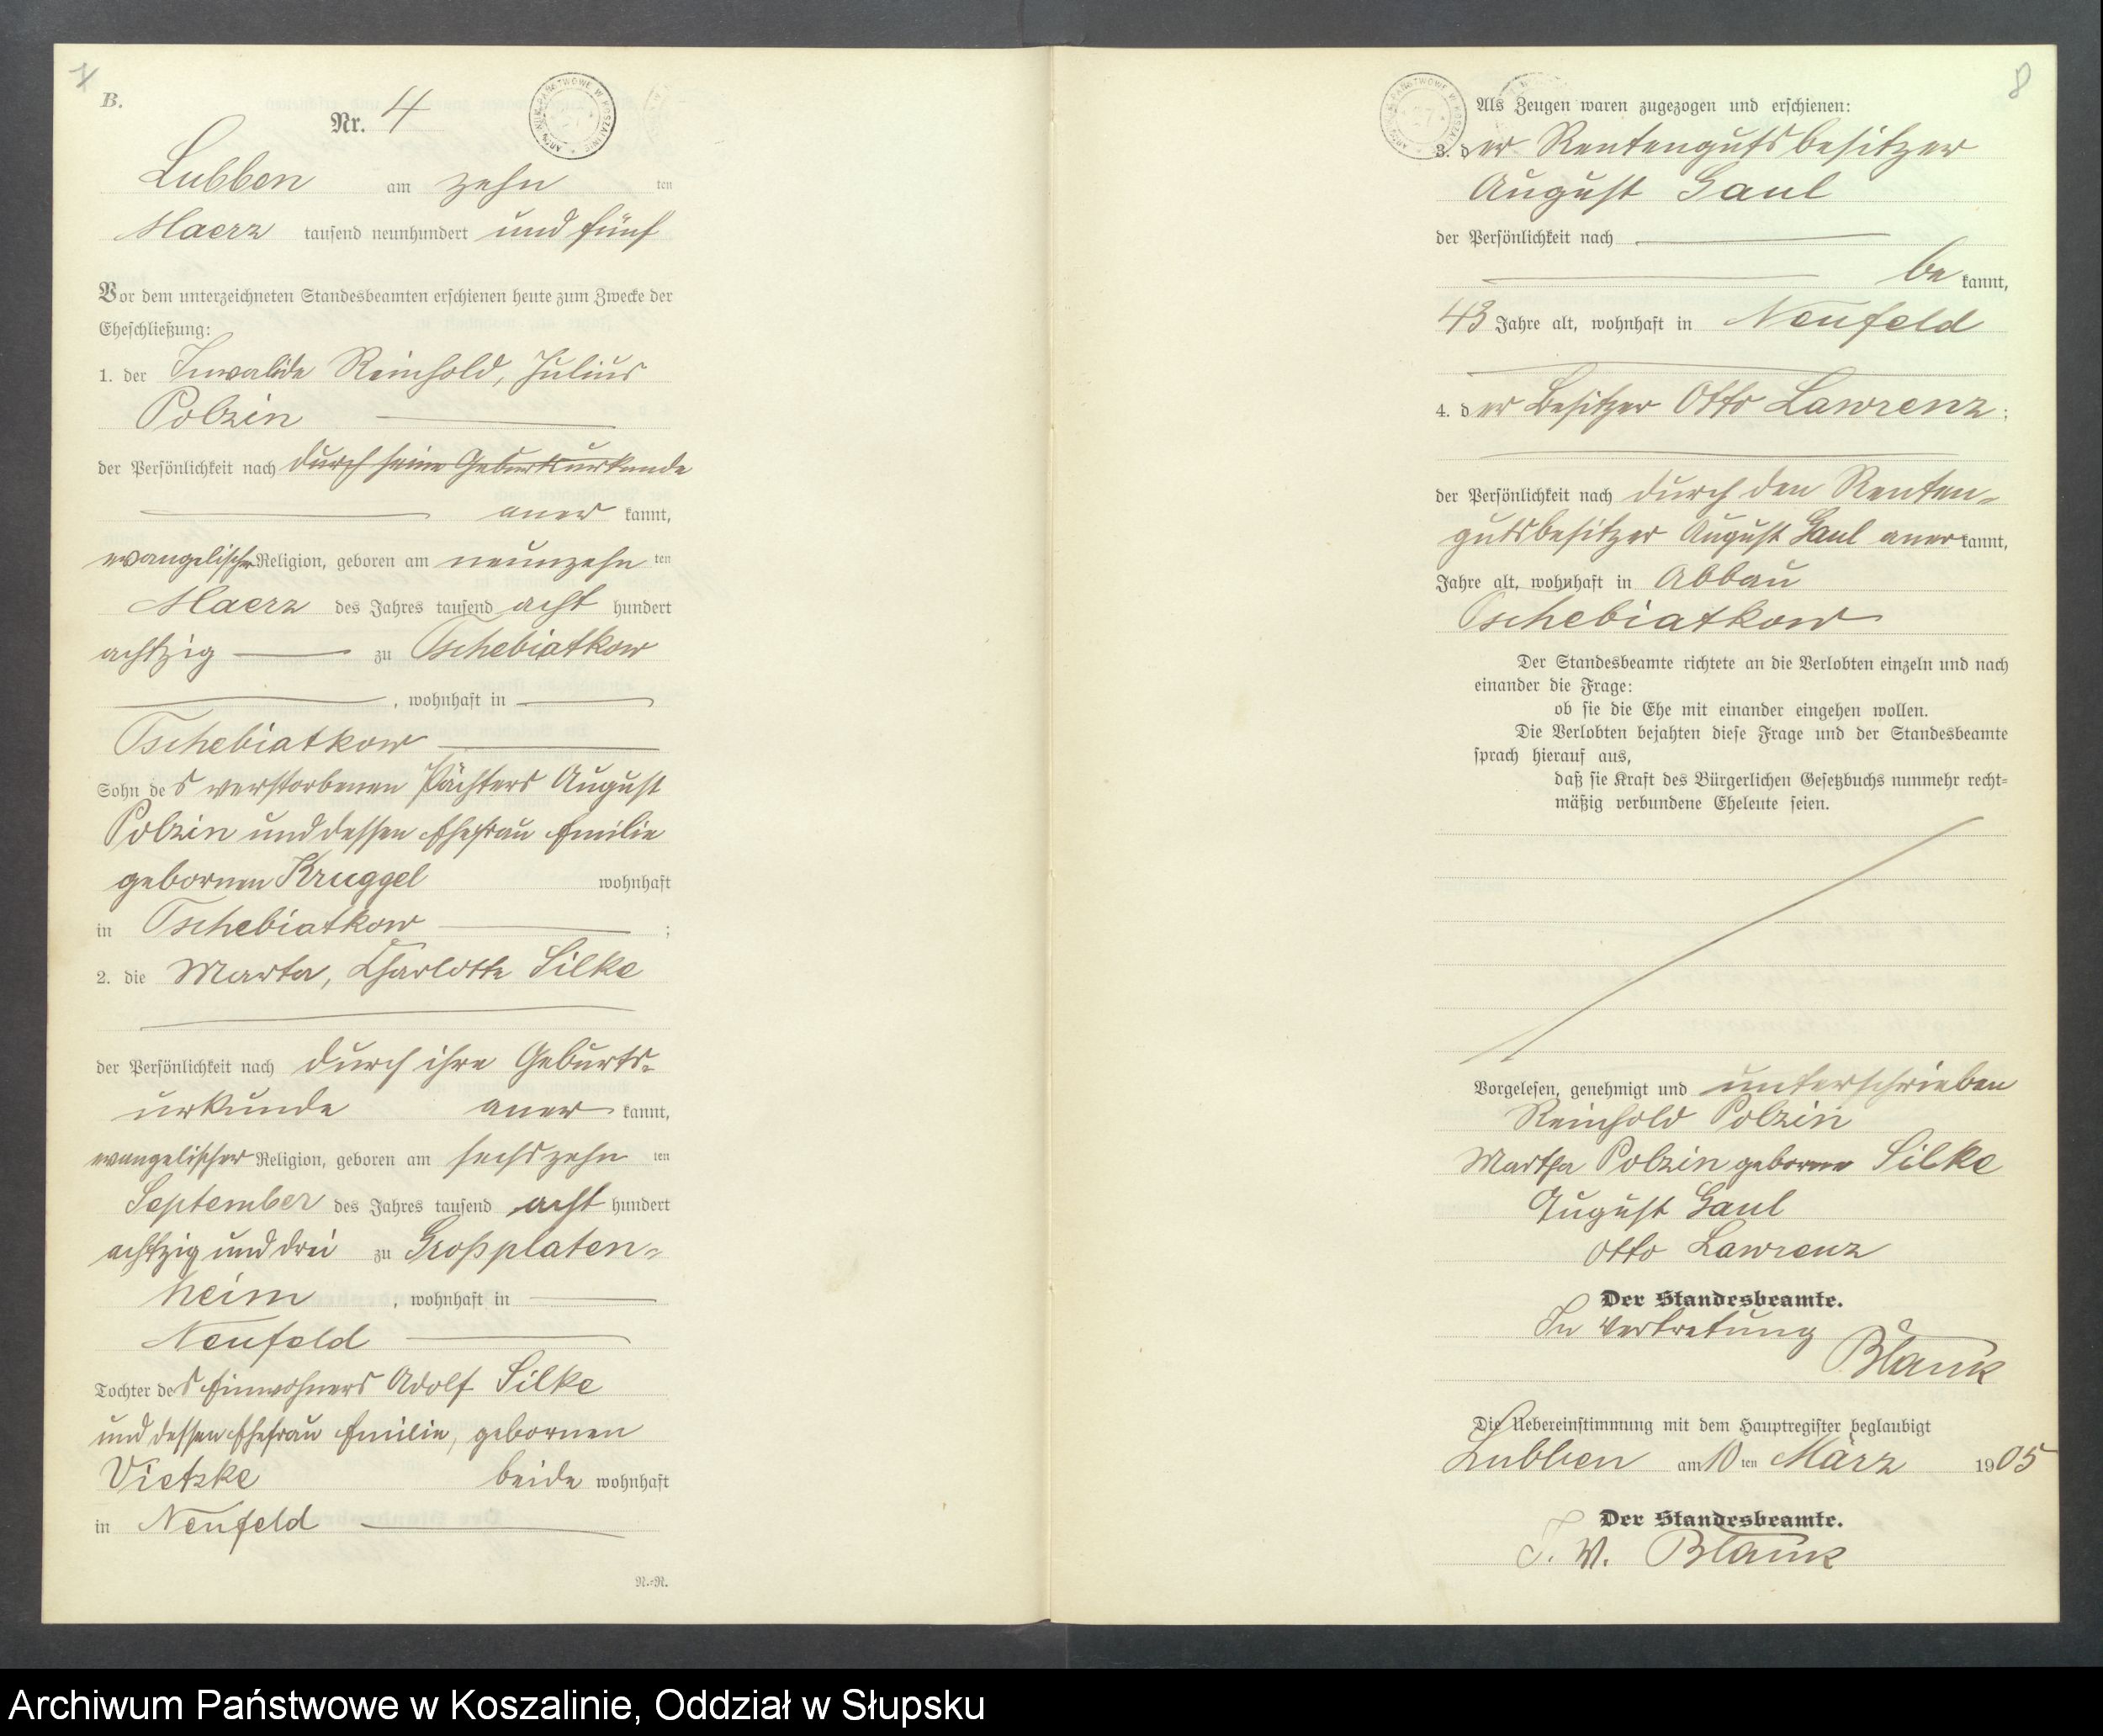 B.
Nr. 4
Lubben am zehn ten
Maerz tausend neunhundert und fünf
Vor dem unterzeichneten Standesbeamten erschienen heute zum Zwecke der
Eheschließung:
1. der Invalide Reinhold, Julius
Polzin
der Persönlichkeit nach durch seine Geburtsurkunde
aner kannt,
evangelischer Religion, geboren am neunzehn ten
Maerz des Jahres tausend acht hundert
achtzig zu Tschebiatkow
, wohnhaft in
Tschebiatkow
Sohn des verstorbenen Pächters August
Polzin und dessen Ehefrau Emilie
gebornen Kruggel wohnhaft
in Tschebiatkow ;
2. die Marta, Charlotte Silke
der Persönlichkeit nach durch ihre Geburts-
urkunde aner kannt,
evangelischer Religion, geboren am sechszehn ten
September des Jahres tausend acht hundert
achtzig und drei zu Großplaten-
heim , wohnhaft in
Neufeld
Tochter des Einwohners Adolf Silke
und dessen Ehefrau Emilie, gebornen
Vietzke beide wohnhaft
in Neufeld
N.-N.
8
Als Zeugen waren zugezogen und erschienen:
3. der Rentengutsbesitzer
August Gaul
der Persönlichkeit nach
be kannt,
43 Jahre alt, wohnhaft in Neufeld
4. der Besitzer Otto Lawrenz ;
der Persönlichkeit nach durch den Renten-
gutsbesitzer August Gaul aner kannt,
Jahre alt, wohnhaft in Abbau
Tschebiatkow
Der Standesbeamte richtete an die Verlobten einzeln und nach
einander die Frage:
ob sie die Ehe mit einander eingehen wollen.
Die Verlobten bejahten diese Frage und der Standesbeamte
sprach hierauf aus,
daß sie Kraft des Bürgerlichen Gesetzbuchs nunmehr recht-
mäßig verbundene Eheleute seien.
Vorgelesen, genehmigt und unterschrieben
Reinhold Polzin
Martha Polzin geborne Silke
August Gaul
Otto Lawrenz
Der Standesbeamte.
In Vertretung
Blank
Die Uebereinstimmung mit dem Hauptregister beglaubigt
Lubben am 10 ten März 1905
Der Standesbeamte.
I. V. Blank
Archiwum Państwowe w Koszalinie, Oddział w Słupsku